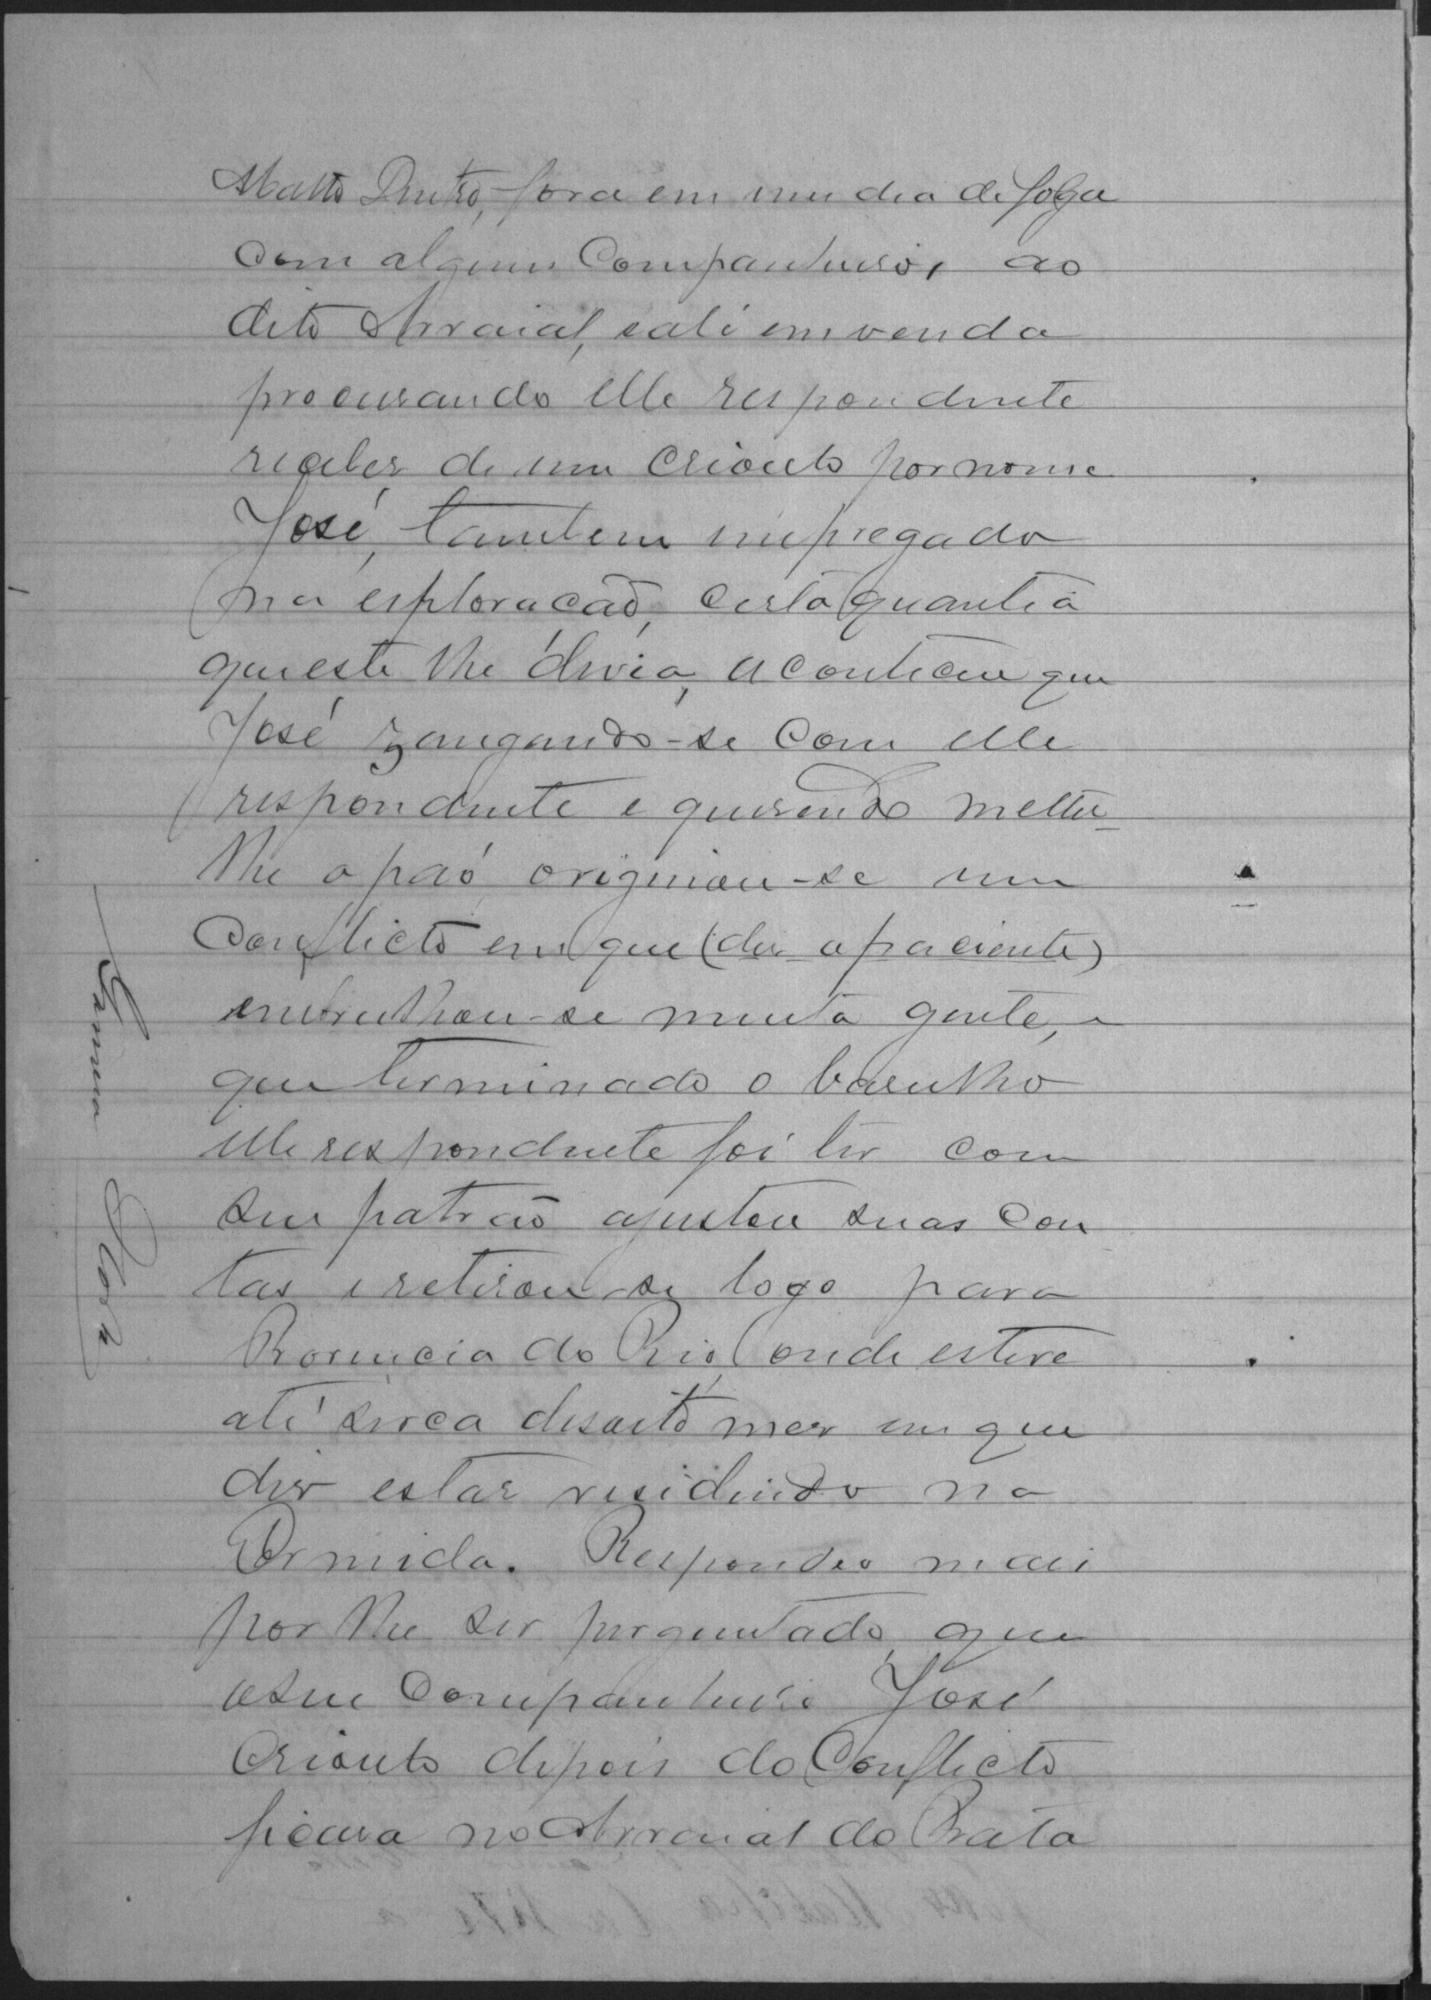 Matto Dentro, fora em um dia de folga
com alguns Companheiros, ao
dito Arraial, e ali em venda
procurando elle respondente
receber de um Crioulo por nome
José, tambem impregado
na esploracaõ, certa quantia
que este lhe devia, aconteceu que
José zangando-se com elle
respondente e querendo metter-
lhe o páo originou-se um
Conflicto em que (diz o paciente)
embrulhou-se muita gente, e
que terminado o barulho
elle respondente foi ter com
seu patraõ ajustou suas con
tas e retirou-se logo para
Provincia do Rio, onde esteve
até serca desoito mez em que
diz estar residindo na
Ormida. Respondeo mais
por lhe ser perguntado, que
o seu Companheiro José
Crioulo depois do Conflicto
ficara no Arraial do Prata